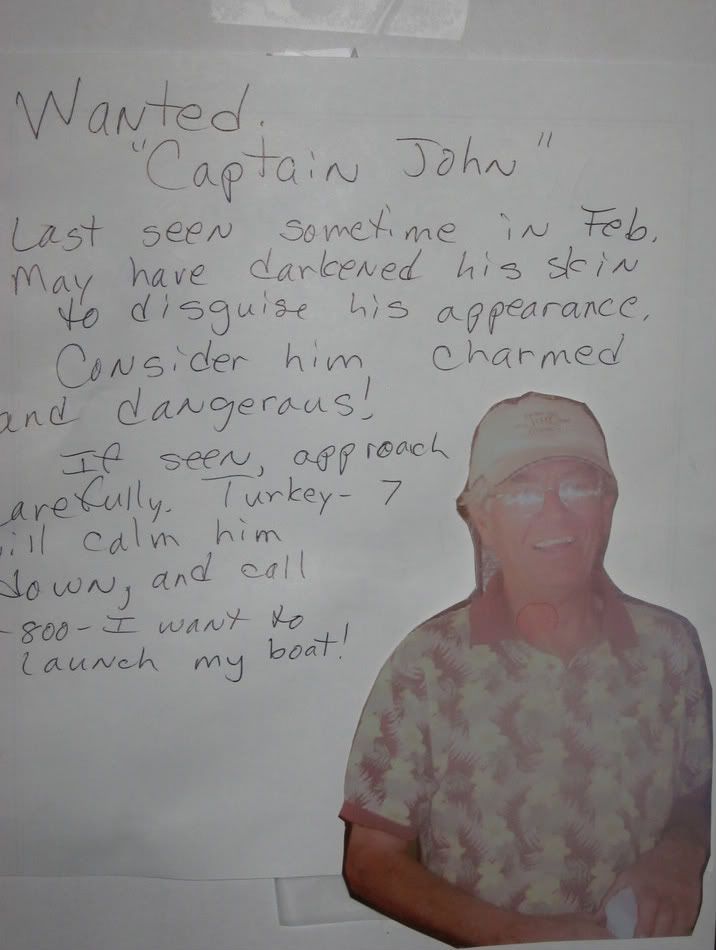 Wanted.
"Captain John"
Last seen sometime in Feb.
May have darkened his skin
to disguise his appearance.
Consider him charmed
and dangeraus!
If seen, approach
arefully. Turkey - 7
ill calm him
down, and call
-800-I want to
launch my boat!